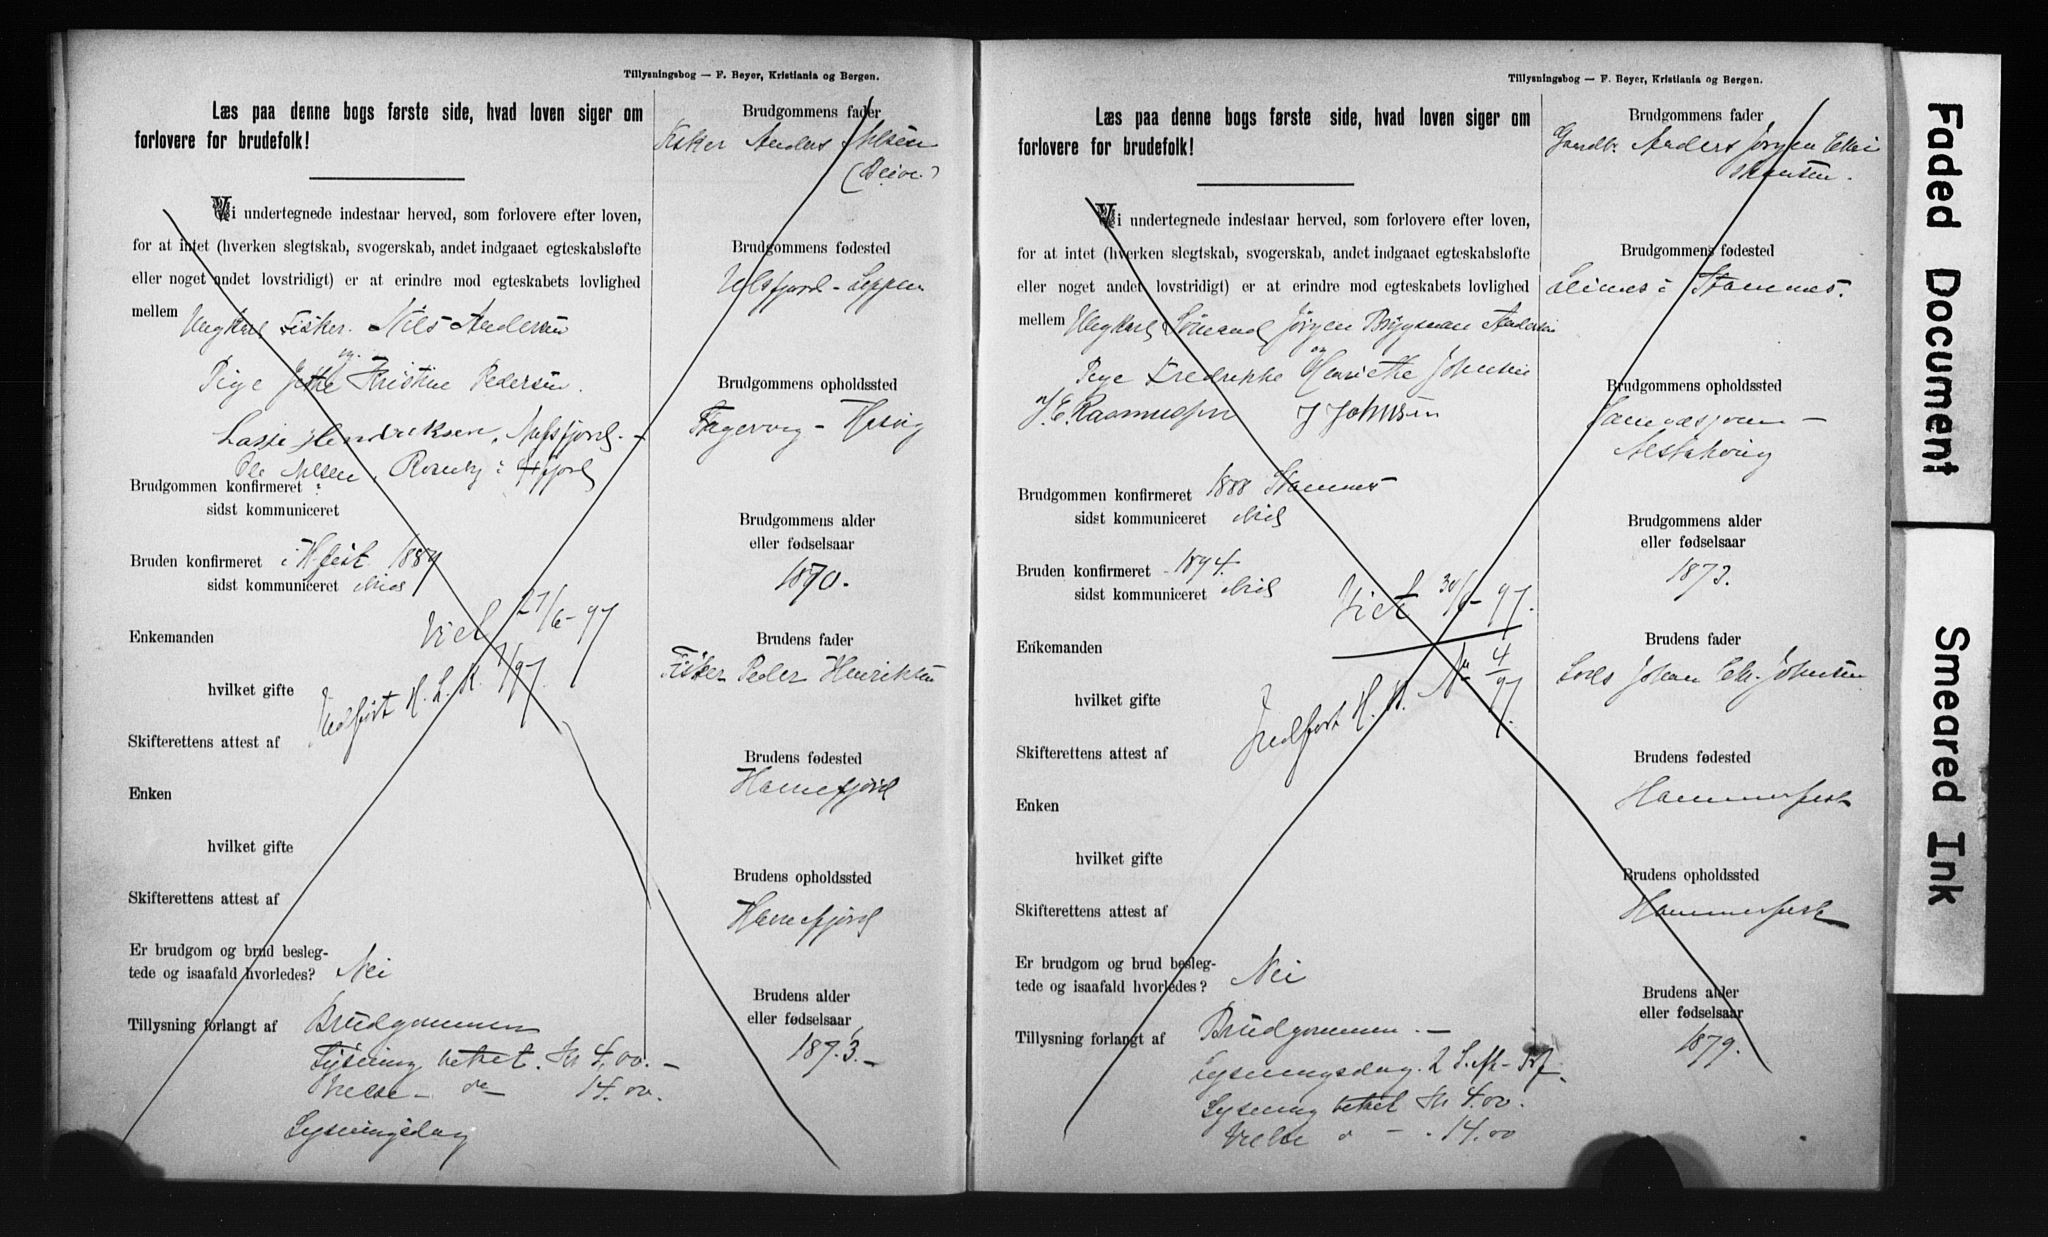 Tillysningsbog — F. Beyer, Kristiania og Bergen.
Læs paa denne bogs første side, hvad loven siger om
forlovere for brudefolk!
Vi undertegnede indestaar herved, som forlovere efter loven,
for at intet (hverken slegtskab, svogerskab, andet indgaaet egteskabsløfte
eller noget andet lovstridigt) er at erindre mod egteskabets lovlighed
mellem Ungkarl Fisker Nils Andersen
og
Pige Kristine Pedersen.
Hendriksen,
Ole Nilsen,
Brudgommen konfirmeret
sidst kommuniceret
Bruden konfirmeret i Hfest 1889
sidst kommuniceret
Viet 27/6-97
Enkemanden
hvilket gifte
Indført H. L. K.
Skifterettens attest af
Enken
hvilket gifte
Skifterettens attest af
Er brudgom og brud besleg-
tede og isaafald hvorledes? Nei
Tillysning forlangt af Brudgommen
Lysning betalt. Kr 4.00. —
Vielse — do 14.00.
Lysningsdag
Brudgommens fader
Fisker Anders Nilsen
Brudgommens fødested
Ulsfjord -
Brudgommens opholdssted
Brudgommens alder
eller fødselsaar
1870.
Brudens fader
Fisker Peder Henriksen
Brudens fødested
Brudens opholdssted
Brudens alder
eller fødselsaar
1873. —
Tillysningsbog — F. Beyer, Kristiania og Bergen.
Læs paa denne bogs første side, hvad loven siger om
forlovere for brudefolk!
Vi undertegnede indestaar herved, som forlovere efter loven,
for at intet (hverken slegtskab, svogerskab, andet indgaaet egteskabsløfte
eller noget andet lovstridigt) er at erindre mod egteskabets lovlighed
mellem Ungkarl Sømand Jørgen Andersen
og
Pige Fredrikke Henriette Johnsen
Rasmussen J Johnsen
Brudgommen konfirmeret 1888 Stamnes
sidst kommuniceret
Bruden konfirmeret 1894.
sidst kommuniceret
Viet 30/6-97.
Enkemanden
hvilket gifte
Indført H. K. No 4/97.
Skifterettens attest af
Enken
hvilket gifte
Skifterettens attest af
Er brudgom og brud besleg-
tede og isaafald hvorledes? Nei
Tillysning forlangt af Brudgommen. —
Lysningsdag. 2 S.
Lysning betalt Kr 4.00.
Vielse do — 14.00
Brudgommens fader
Gaardbr Anders Jørgen
Brudgommens fødested
i Stamnes.
Brudgommens opholdssted
Brudgommens alder
eller fødselsaar
1873.
Brudens fader
Lods Johan Chr. Johnsen
Brudens fødested
Hammerfest
Brudens opholdssted
Hammerfest
Brudens alder
eller fødselsaar
1879.
Faded Document
Smeared Ink